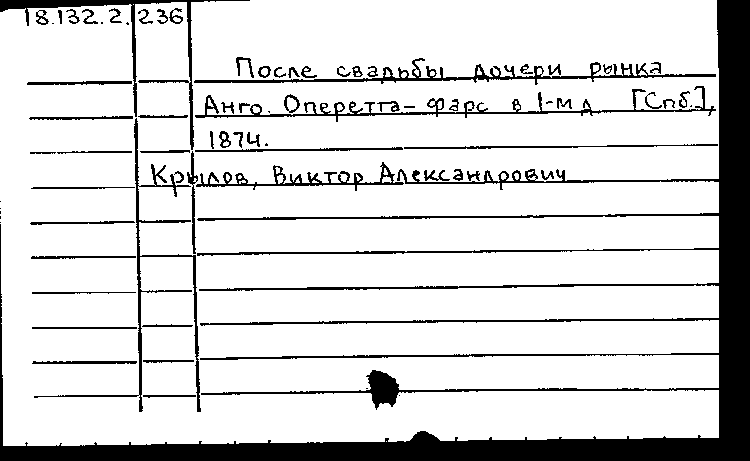 18.132.2.236
После свадьбы дочери рынка
Анго. Оперетта-фарс в 1-м д [Спб.],
1874.
Крылов, Виктор Александрович